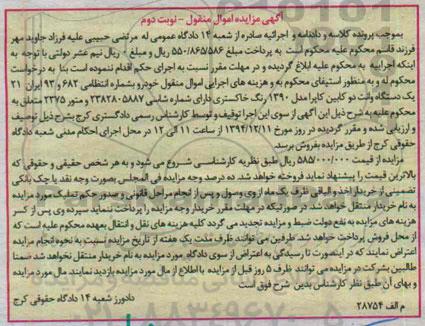 آگهی مزایده اموال منقول - نوبت دوم
بموجب پرونده کلاسه و دادنامه و اجرائیه صادره از شعبه ۱۴ دادگاه عمومی له مرتضی حبیبی علیه فرزاد جاوید مهر
فرزند قاسم محکوم علیه محکوم است به پرداخت مبلغ ۵۵۰/۸۶۵/۵۸۶ ریال و مبلغ ۰ ریال نیم عشر دولتی با توجه به
اینکه اجراییه به محکوم علیه ابلاغ گردیده و در مهلت مقرر نسبت به اجرای حکم اقدام ننموده است بنا به درخواست
محکوم له و به منظور استیفای محکوم به و هزینه های اجرایی اموال منقول خودرو بشماره انتظامی ۶۸۲ و ۹۳ ایران ۲۱
یک دستگاه وانت دو کابین کاپرا مدل ۱۳۹۰ رنگ خاکستری دارای شماره شاسی ۲۳۸۲۰۵۸۸۷ و متور ۲۳۷۵ متعلق به
محکوم علیه به شرح ذیل این آگهی از سوی این اجرا توقیف و توسط کارشناس رسمی دادگستری کرج بشرح ذیل توصیف
و ارزیابی شده و مقرر گردیده در روز مورخ ۱۳۹۴/۱۲/۱۱ از ساعت ۱۱ الی ۱۲ در محل اجرای احکام مدنی شعبه دادگاه
حقوقی کرج از طریق مزایده بفروش برسد.
مزایده از قیمت ۵۸۵/۰۰۰/۰۰۰ ریال طبق نظریه کارشناسی شروع می شود و به هر شخص حقیقی و حقوقی که
بالاترین قیمت را پیشنهاد نماید فروخته خواهد شد. ده درصد وجه مزایده فی المجلس بصورت وجه نقد یا چک بانکی
تضمینی از خریدار اخذ و الباقی ظرف یک ماه از وی وصول و پس از انجام مراحل قانونی و صدور حکم تملیک مورد مزایده
به نام خریدار منتقل خواهد شد. در صورتیکه در مهلت مقرر خریدار وجه مزایده را پرداخت ننماید سپرده وی پس از کسر
هزینه های مزایده به نفع دولت ضبط و مزایده تجدید می گردد کلیه هزینه های نقل و انتقال بعهده محکوم علیه است که
از محل فروش پرداخت خواهد شد. طرفین می توانند ظرف مدت یک هفته از تاریخ مزایده نسبت به نحوه انجام مزایده
اعتراض نمایند که در اینصورت تا رسیدگی به اعتراض از سوی دادگاه مورد مزایده به نام خریدار منتقل نخواهد شد ضمنا
طالبین بشرکت در مزایده می توانند ظرف ۵ روز قبل از مزایده با اطلاع از مال مورد مزایده بازدید نمایند. مال مورد مزایده
و بهای آن طبق نظر کارشناس بدین شرح فوق است
م الف ۲۸۷۵۴
دادورز شعبه ۱۴ دادگاه حقوقی کرج